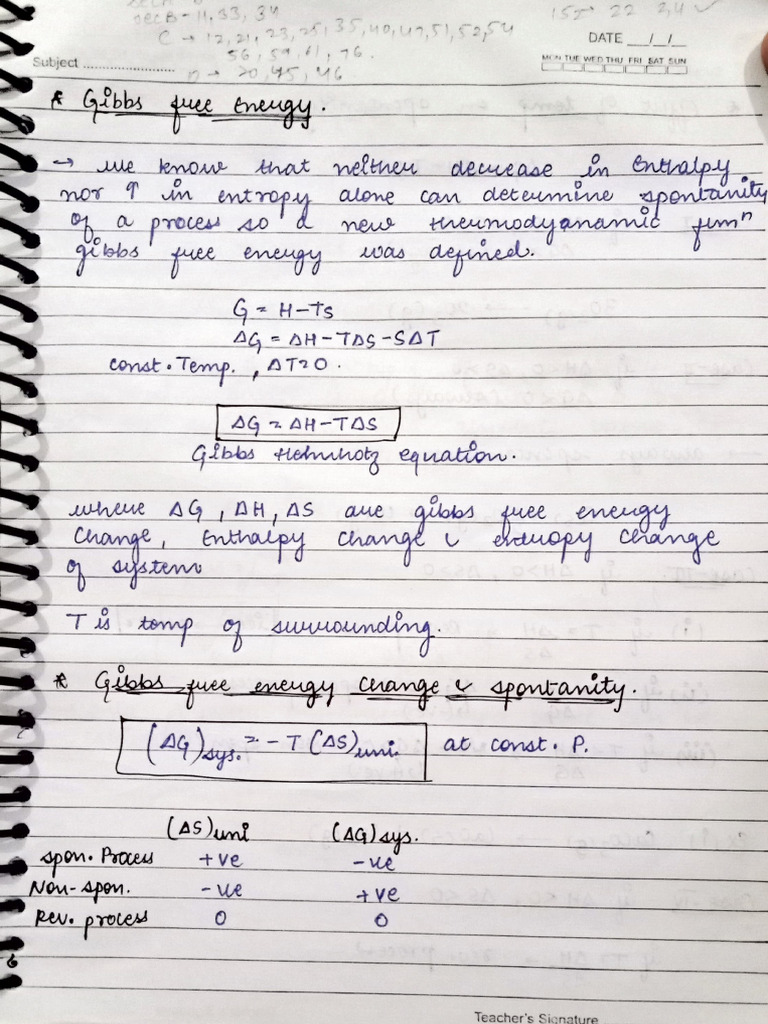 Sec B - 11, 33, 34
152 22 2,4 ✓
C → 12, 21, 23, 25, 35, 40, 47, 51, 52, 54
56, 59, 61, 76.
D → 70, 45, 46
DATE __/__/__
MON TUE WED THU FRI SAT SUN
Subject ....................
* Gibbs free energy.
→ We know that neither decrease in Enthalpy
nor ↑ in entropy alone can determine spontanity
of a process so a new thermodyanamic funⁿ
gibbs free energy was defined.
G = H - TS
ΔG = ΔH - TΔS - SΔT
const. Temp., ΔT = 0.
ΔG = ΔH - TΔS
Gibbs Helmholtz equation.
where ΔG, ΔH, ΔS are gibbs free energy
Change, Enthalpy Change & entropy Change
of system
T is temp of surrounding.
* Gibbs free energy Change & spontanity.
(ΔG)sys. = - T (ΔS)uni. at const. P.
(ΔS)uni (ΔG)sys.
spon. Process +ve -ve
Non-spon. -ve +ve
Rev. process 0 0
Teacher's Signature